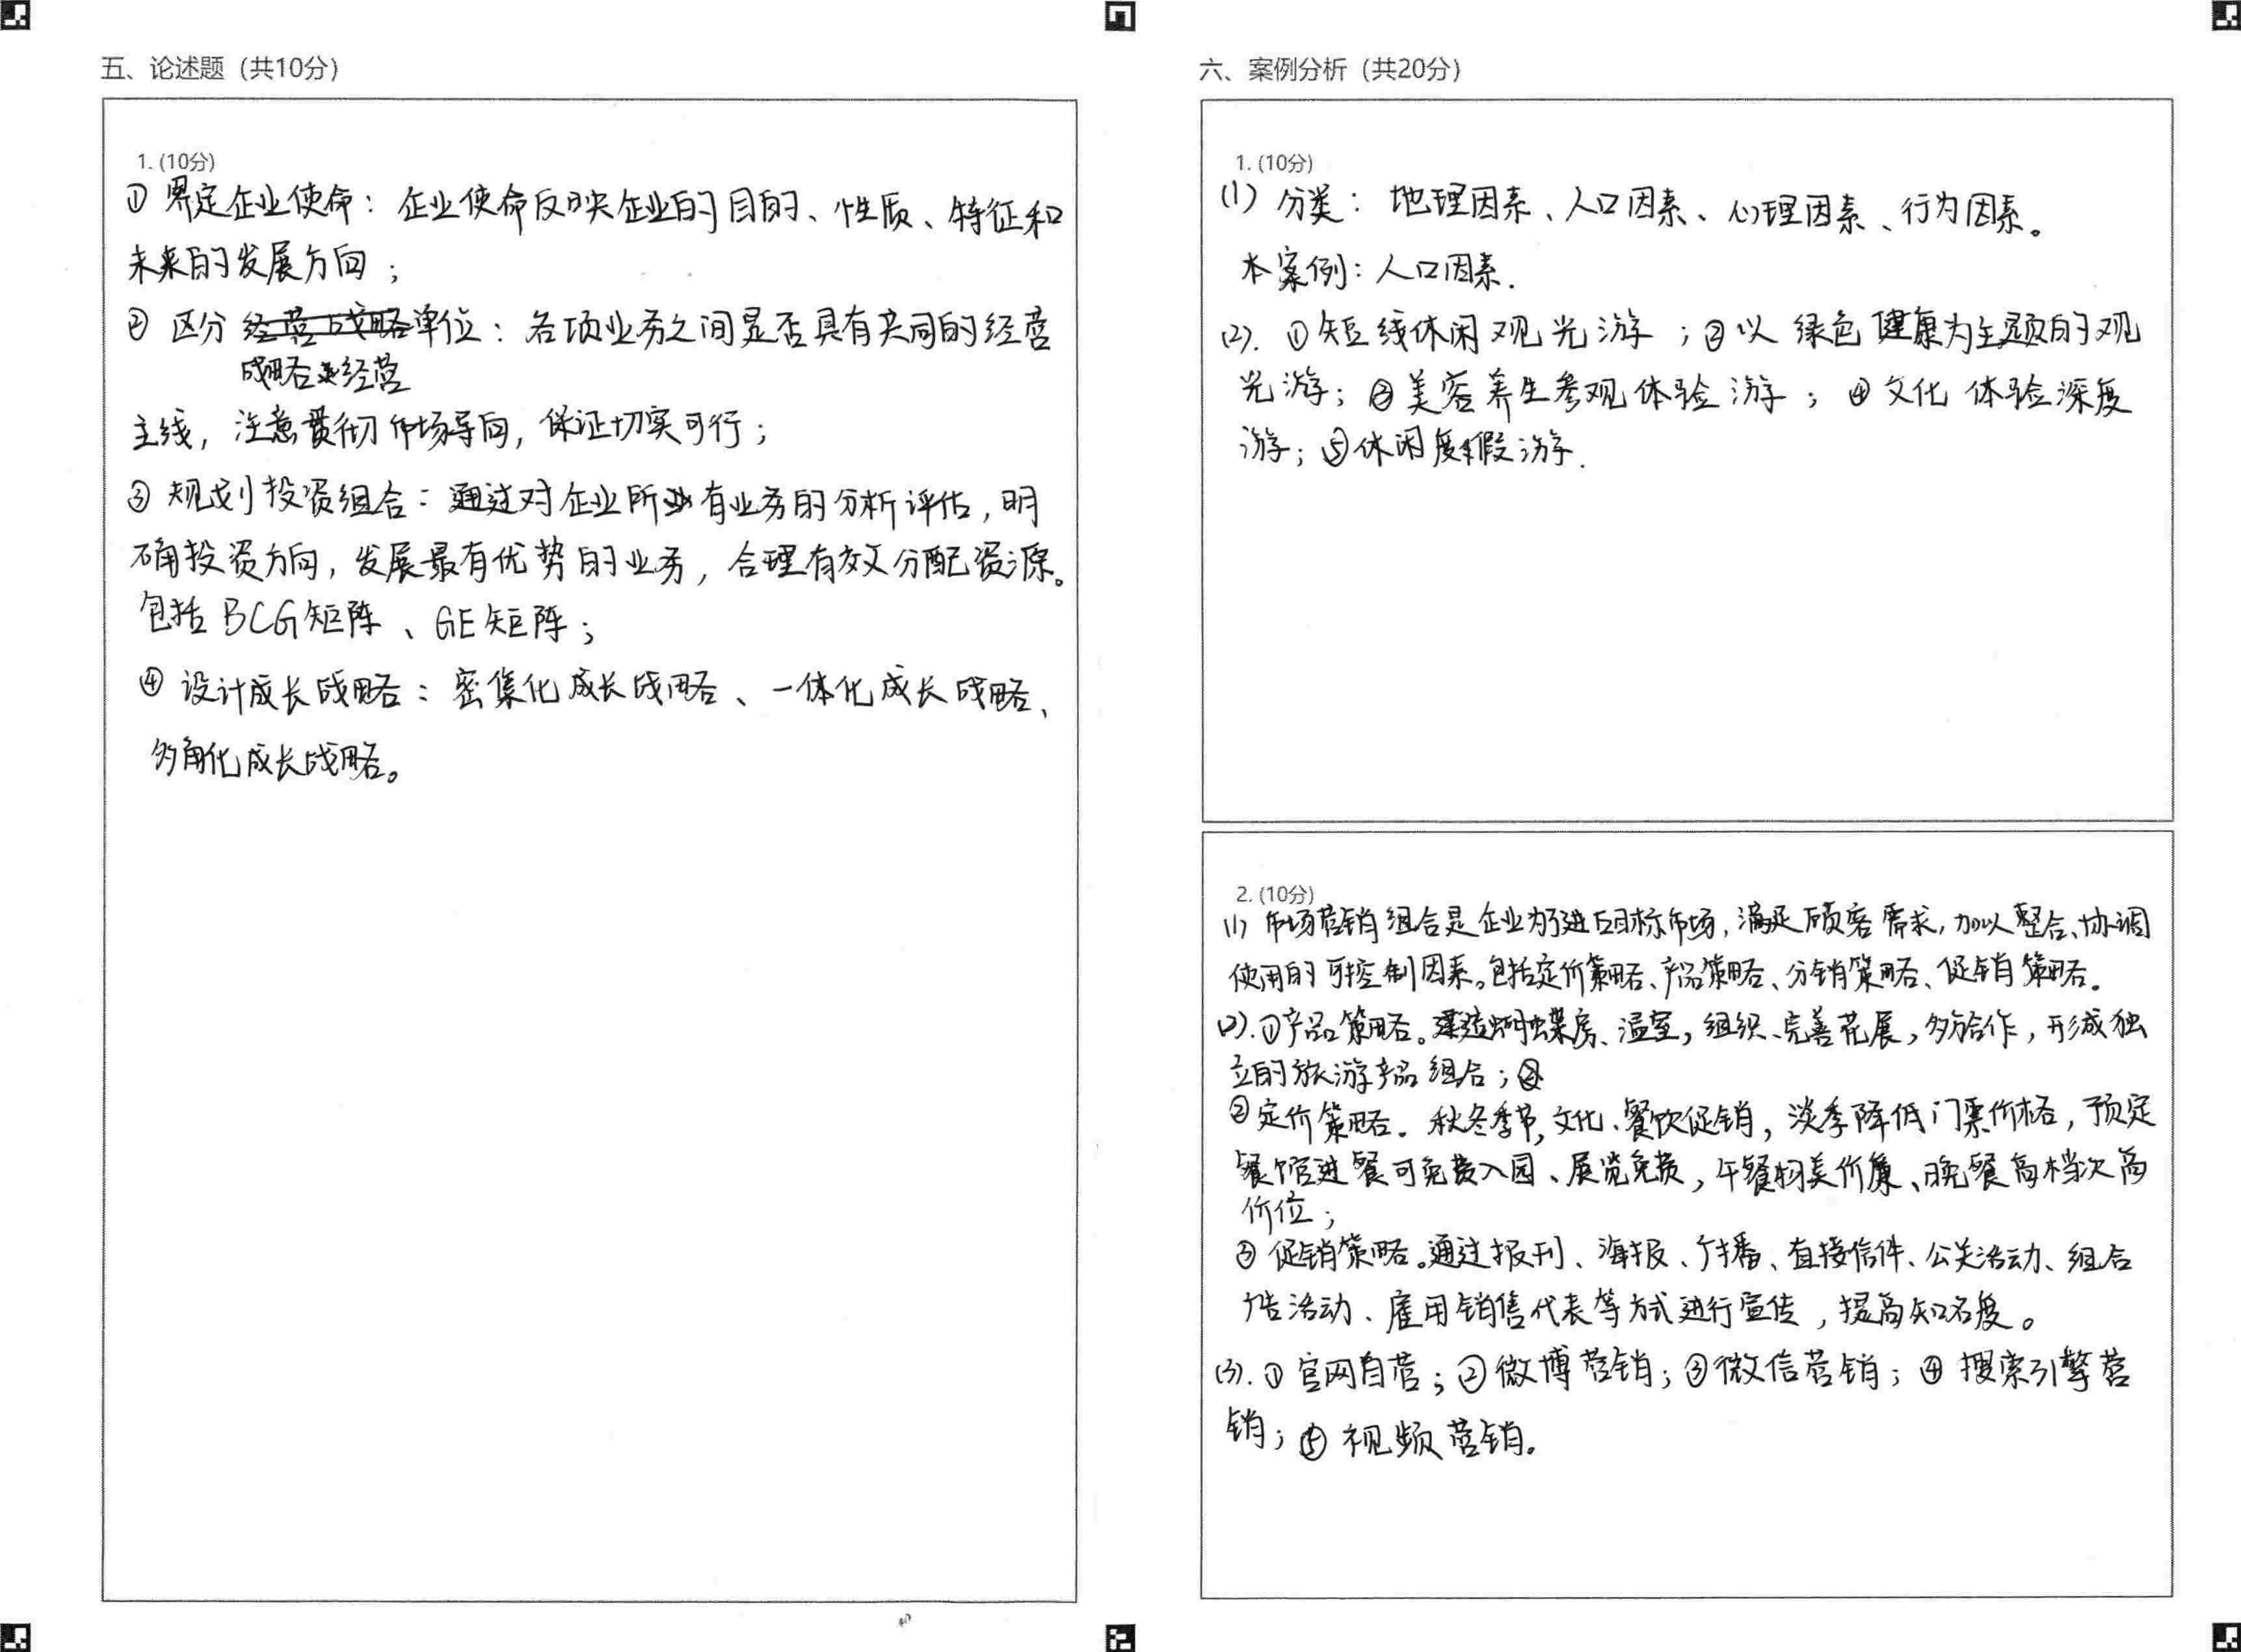 五、论述题（共10分）
1. (10分)
① 界定企业使命：企业使命反映企业的目的、性质、特征和
未来的发展方向；
② 区分经营战略单位：各项业务之间是否具有共同的经营
战略经营
主线，注意贯彻市场导向，保证切实可行；
③ 规划投资组合：通过对企业所有业务的分析评估，明
确投资方向，发展最有优势的业务，合理有效分配资源。
包括BCG矩阵、GE矩阵；
④ 设计成长战略：密集化成长战略、一体化成长战略、
多角化成长战略。
六、案例分析（共20分）
1. (10分)
(1) 分类：地理因素、人口因素、心理因素、行为因素。
本案例：人口因素.
(2). ①短线休闲观光游；②以绿色健康为主题的观
光游；③美容养生参观体验游；④文化体验深度
游；⑤休闲度假游.
2. (10分)
(1) 市场营销组合是企业为了进占目标市场，满足顾客需求，加以整合、协调
使用的可控制因素。包括定价策略、产品策略、分销策略、促销策略。
(2). ①产品策略。建造蝴蝶房、温室，组织、完善花展，多方合作，形成独
立的旅游产品组合；②
②定价策略。秋冬季节，文化、餐饮促销，淡季降低门票价格，预定
餐馆进餐可免费入园、展览免费，午餐物美价廉、晚餐高档次高
价位；
③ 促销策略。通过报刊、海报、广播、直接信件、公关活动、组合
广告活动、雇用销售代表等方式进行宣传，提高知名度。
(3). ① 官网自营；②微博营销；③微信营销；④ 搜索引擎营
销；⑤ 视频营销。